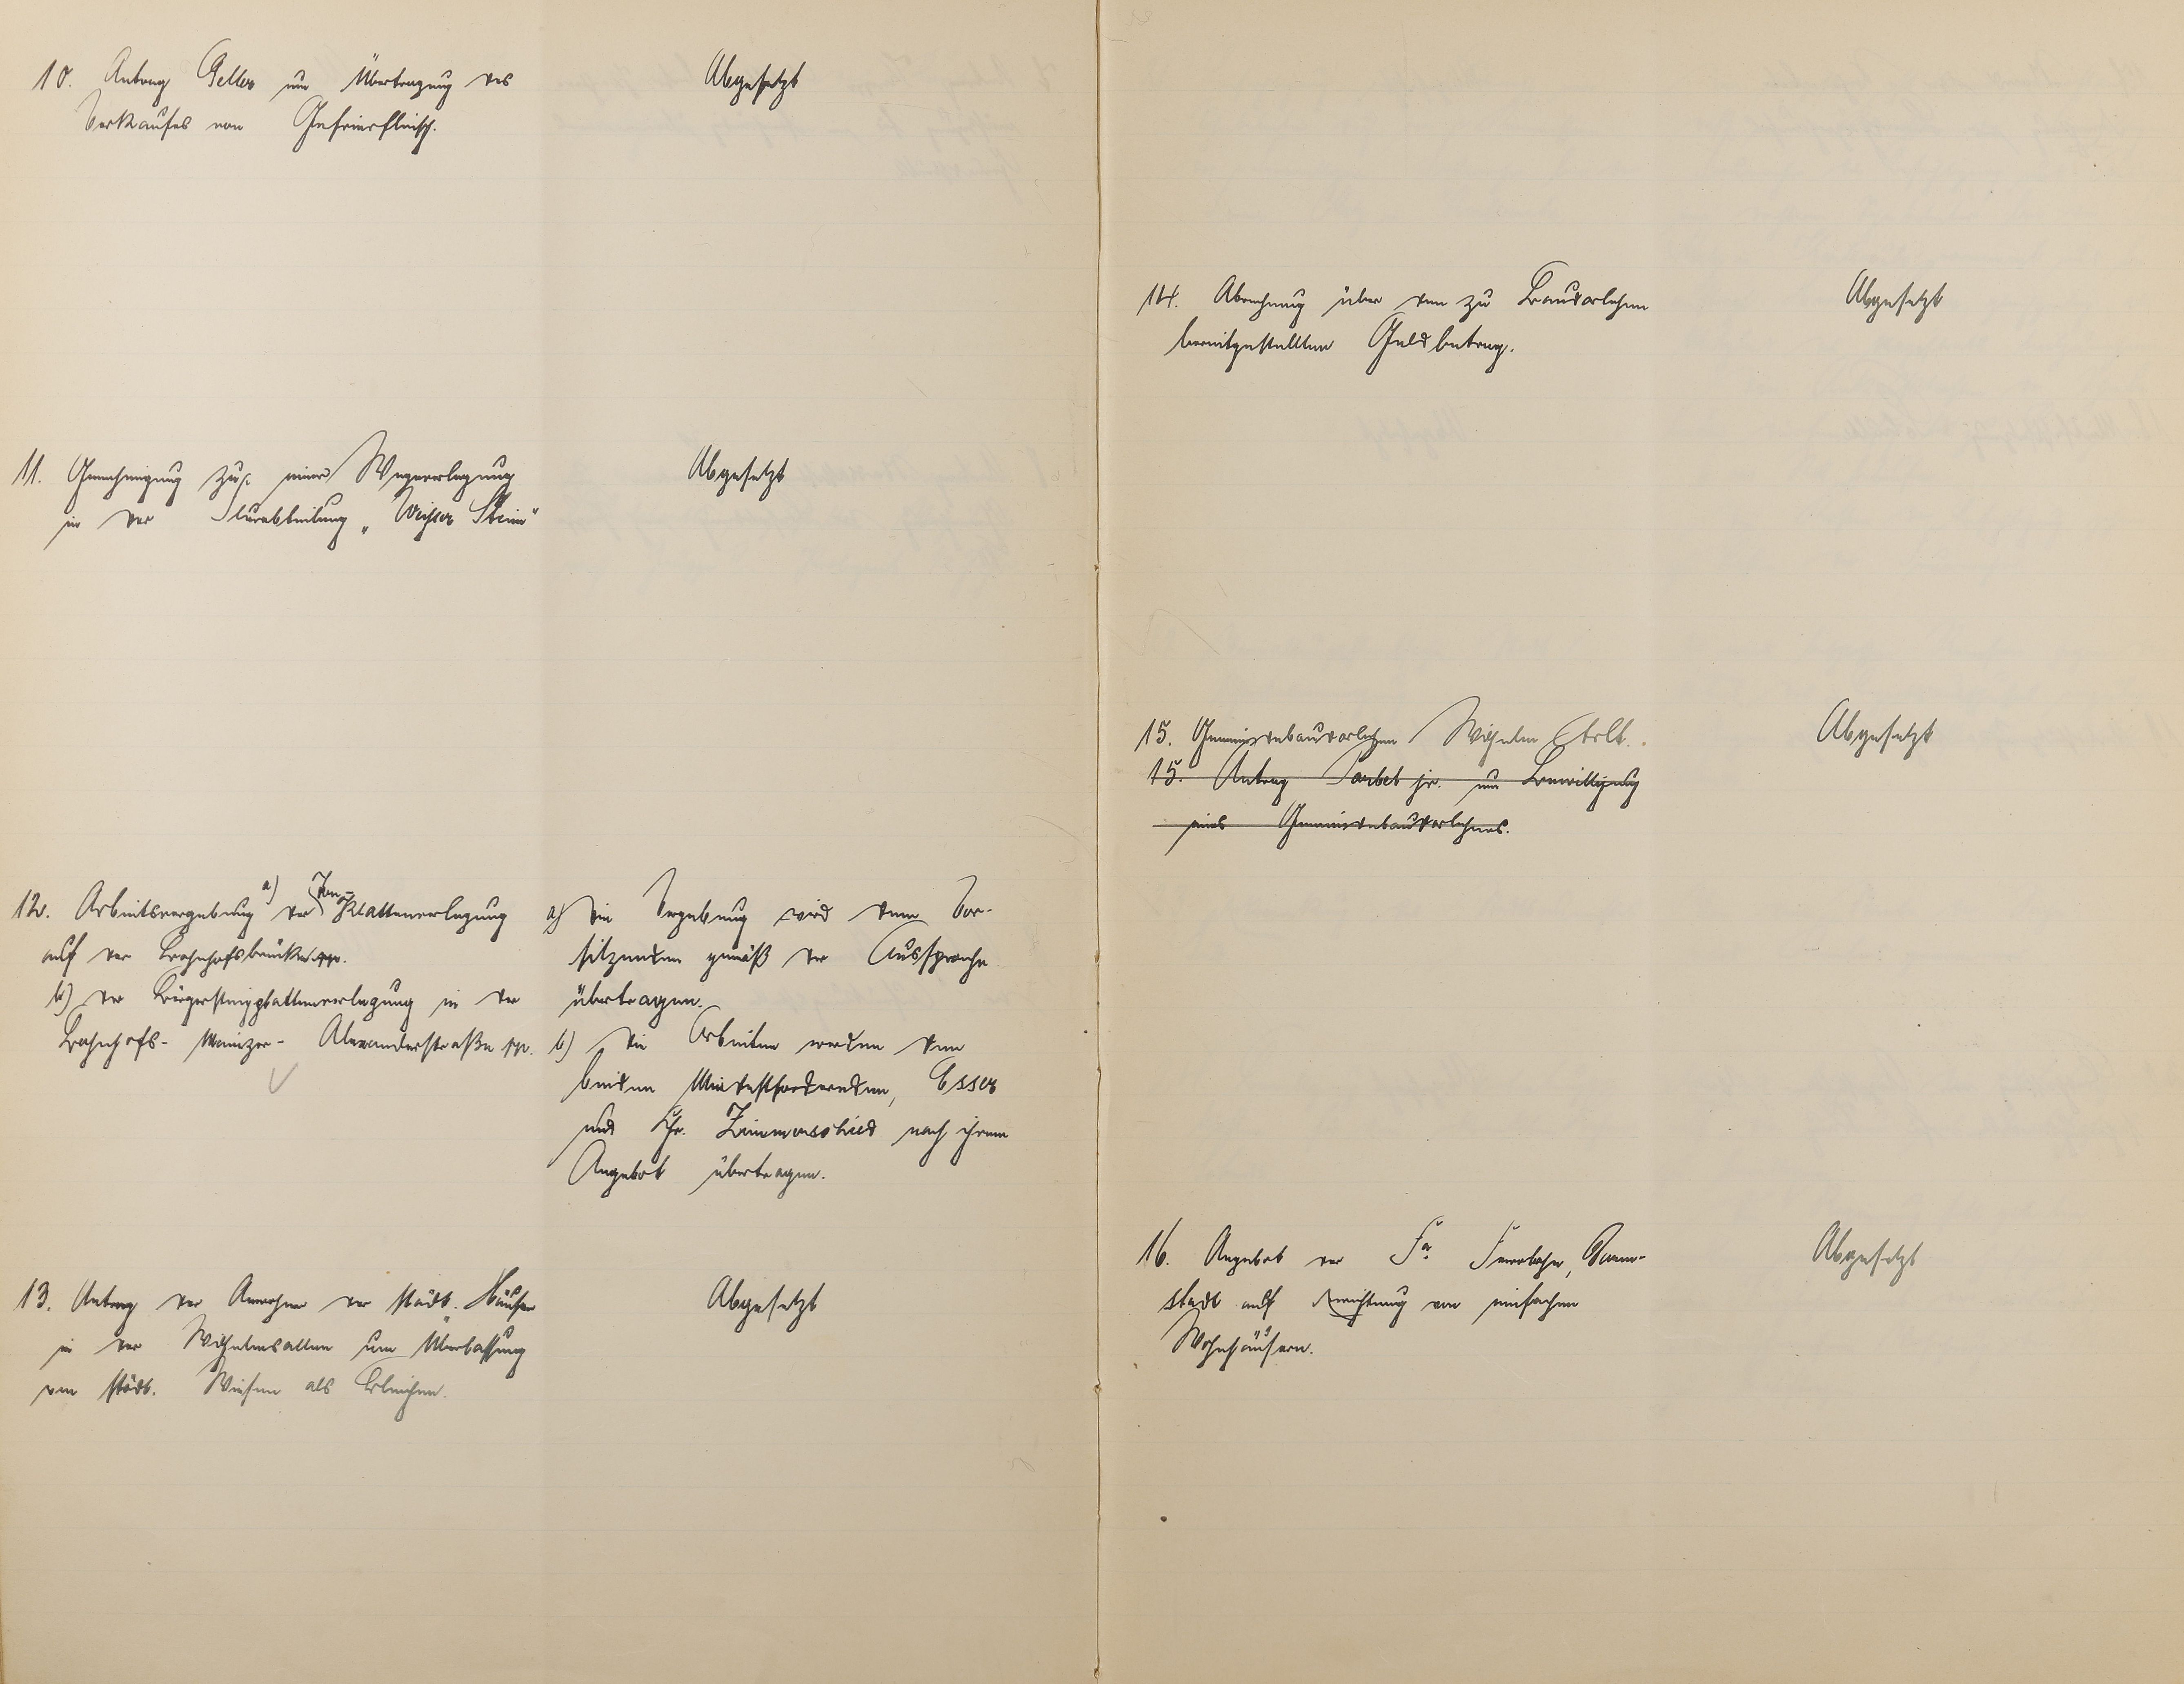 10. Antrag Geller um Übertragung des
Verkaufes von Gefrierfleisch.
Abgesetzt
11. Genehmigung zur einer Wegverlegung
in der Flurabteilung „Weisser Stein"
Abgesetzt
12. Arbeitsvergebung a) der Ton-Plattenverlegung
auf der Bahnhofsbrücke pp.
b) der Bürgersteigplattenverlegung in der
Bahnhofs- Mainzer- Alexanderstraße pp.
a) die Vergebung wird dem Vor-
sitzenden gemäß der Aussprache
übertragen.
b) die Arbeiten werden den
beiden Mindestfordernden, Esser
und Chr. Zimmerschied nach ihrem
Angebot übertragen.
13. Antrag der Anwohner der städt. Häuser
in der Wilhelmsallee um Überlassung
von städt. Wiesen als Bleichen.
Abgesetzt
14. Abrechnung über den zu Baudarlehen
bereitgestellten Geldbetrag.
Abgesetzt
15. Gemeindebaudarlehen Wilhelm
Abgesetzt
15. Antrag jr. um Bewilligung
eines Gemeindebaudarlehens.
16. Angebot der Fa. Darm-
stadt auf Errichtung von einfachen
Wohnhäusern.
Abgesetzt